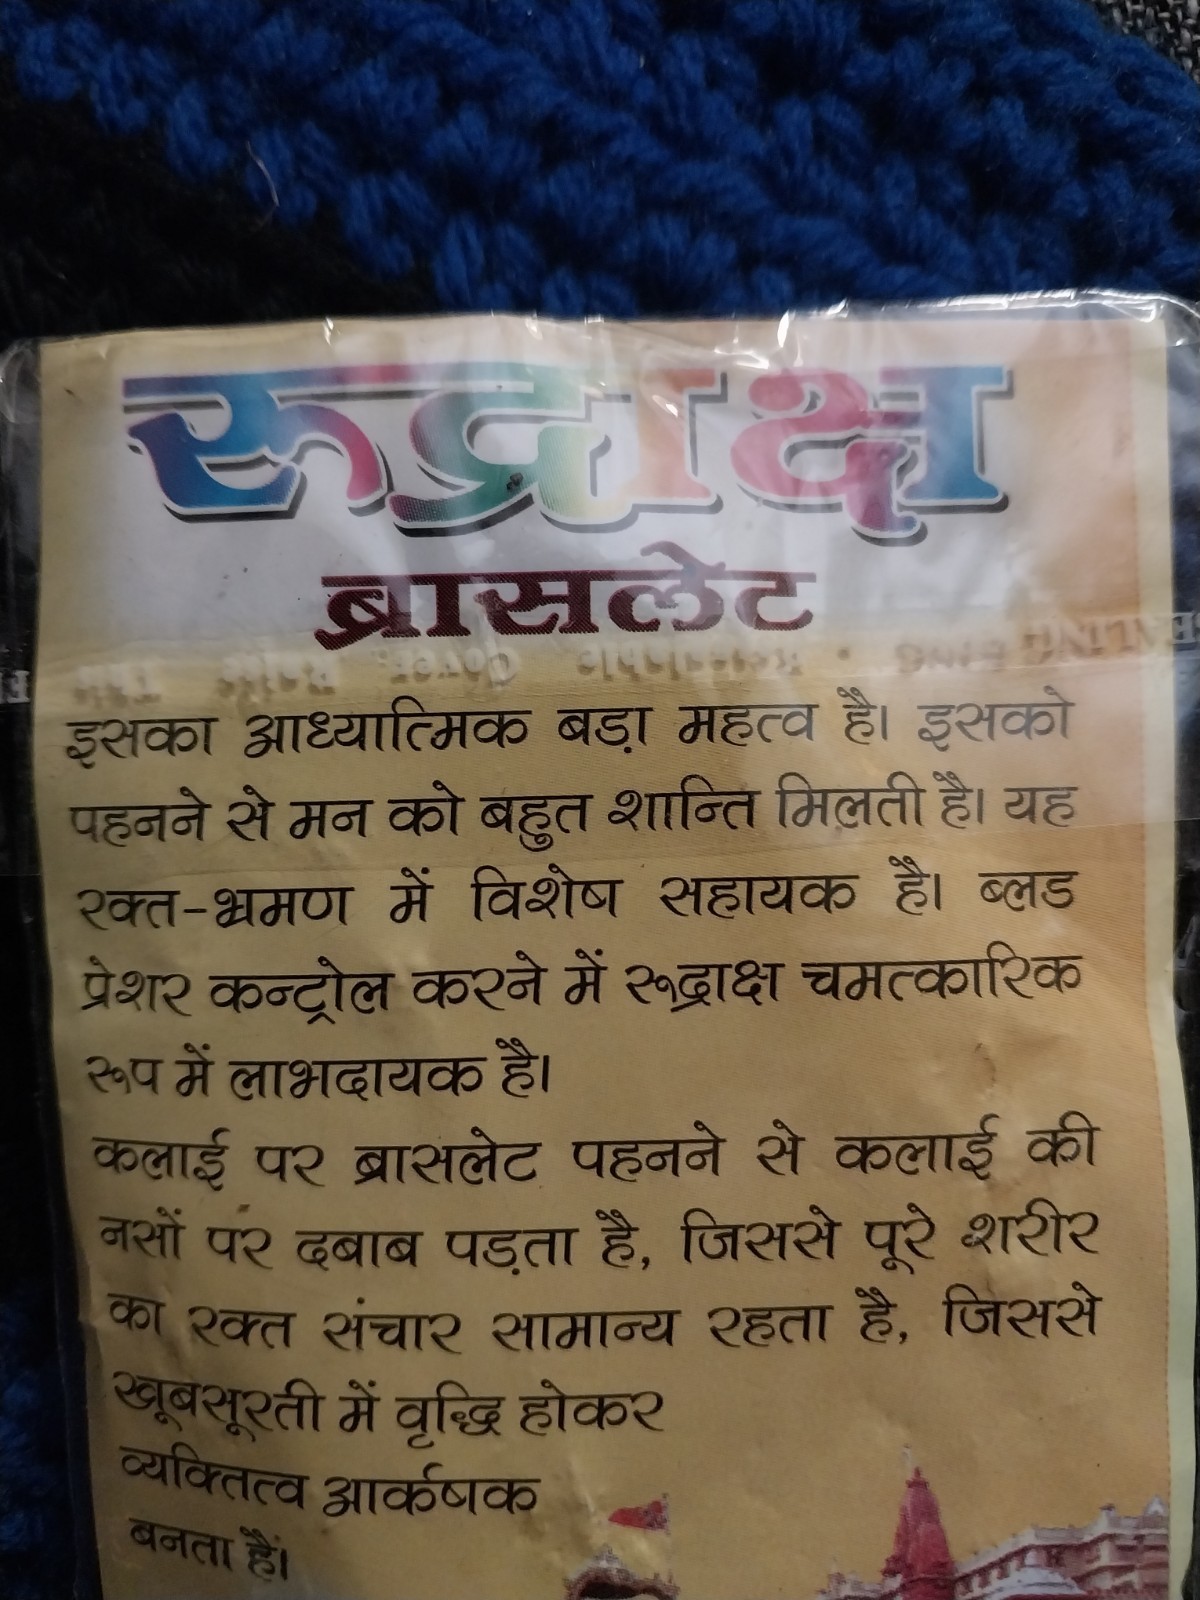 रूद्राक्ष
ब्रासलेट
इसका आध्यात्मिक बड़ा महत्व है। इसको
पहनने से मन को बहुत शान्ति मिलती है। यह
रक्त-भ्रमण में विशेष सहायक है। ब्लड
प्रेशर कन्ट्रोल करने में रूद्राक्ष चमत्कारिक
रूप में लाभदायक है।
कलाई पर ब्रासलेट पहनने से कलाई की
नसों पर दबाब पड़ता है, जिससे पूरे शरीर
का रक्त संचार सामान्य रहता है, जिससे
खूबसूरती में वृद्धि होकर
व्यक्तित्व आर्कषक
बनता हैं।